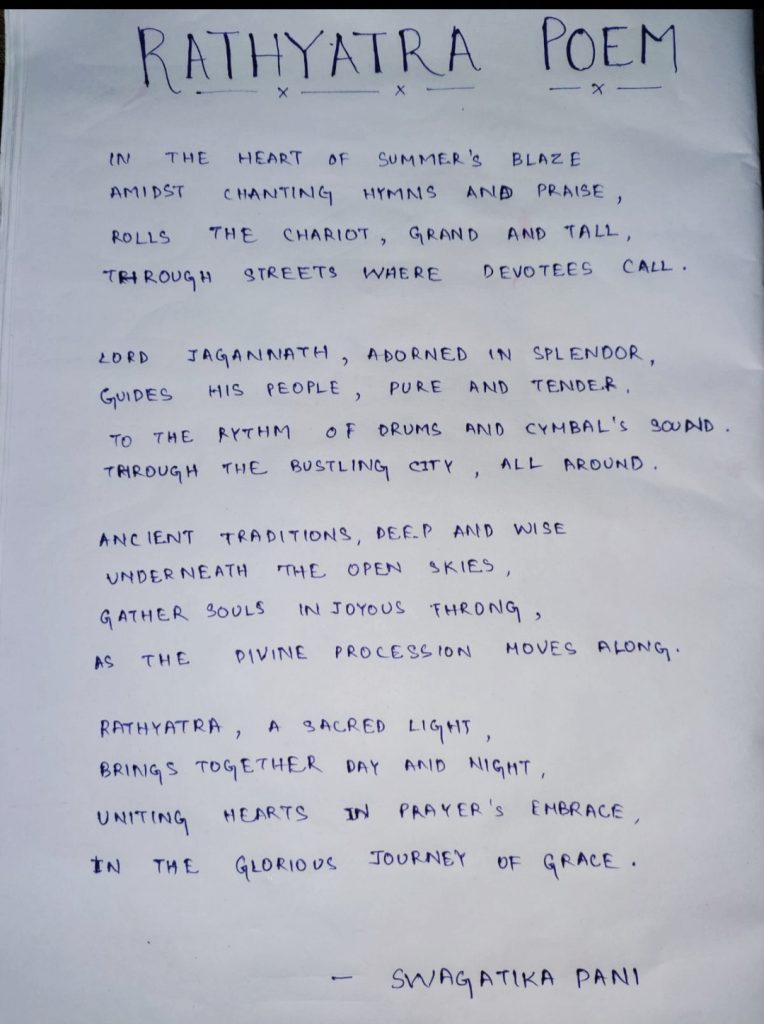 RATHYATRA POEM
IN THE HEART OF SUMMER'S BLAZE
AMIDST CHANTING HYMNS AND PRAISE,
ROLLS THE CHARIOT, GRAND AND TALL,
THROUGH STREETS WHERE DEVOTEES CALL.
LORD JAGANNATH, ADORNED IN SPLENDOR,
GUIDES HIS PEOPLE, PURE AND TENDER.
TO THE RYTHM OF DRUMS AND CYMBAL'S SOUND.
THROUGH THE BUSTLING CITY, ALL AROUND.
ANCIENT TRADITIONS, DEEP AND WISE
UNDERNEATH THE OPEN SKIES,
GATHER SOULS IN JOYOUS THRONG,
AS THE DIVINE PROCESSION MOVES ALONG.
RATHYATRA, A SACRED LIGHT,
BRINGS TOGETHER DAY AND NIGHT,
UNITING HEARTS IN PRAYER'S EMBRACE,
IN THE GLORIOUS JOURNEY OF GRACE.
- SWAGATIKA PANI